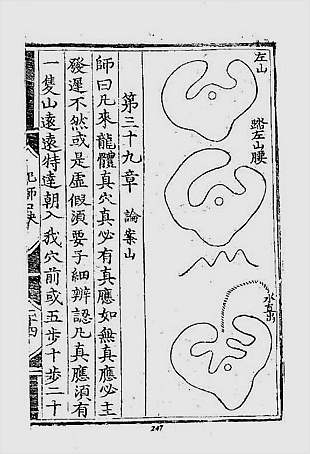 左山
踏左山腰
水右出
第三十九章 論案山
師曰凡來龍體真穴真必有真應如無真應必主
發遲不然或是虛假須要子細辨認凡真應須有
一隻山遠遠特達朝入我穴前或五步十步二十
247